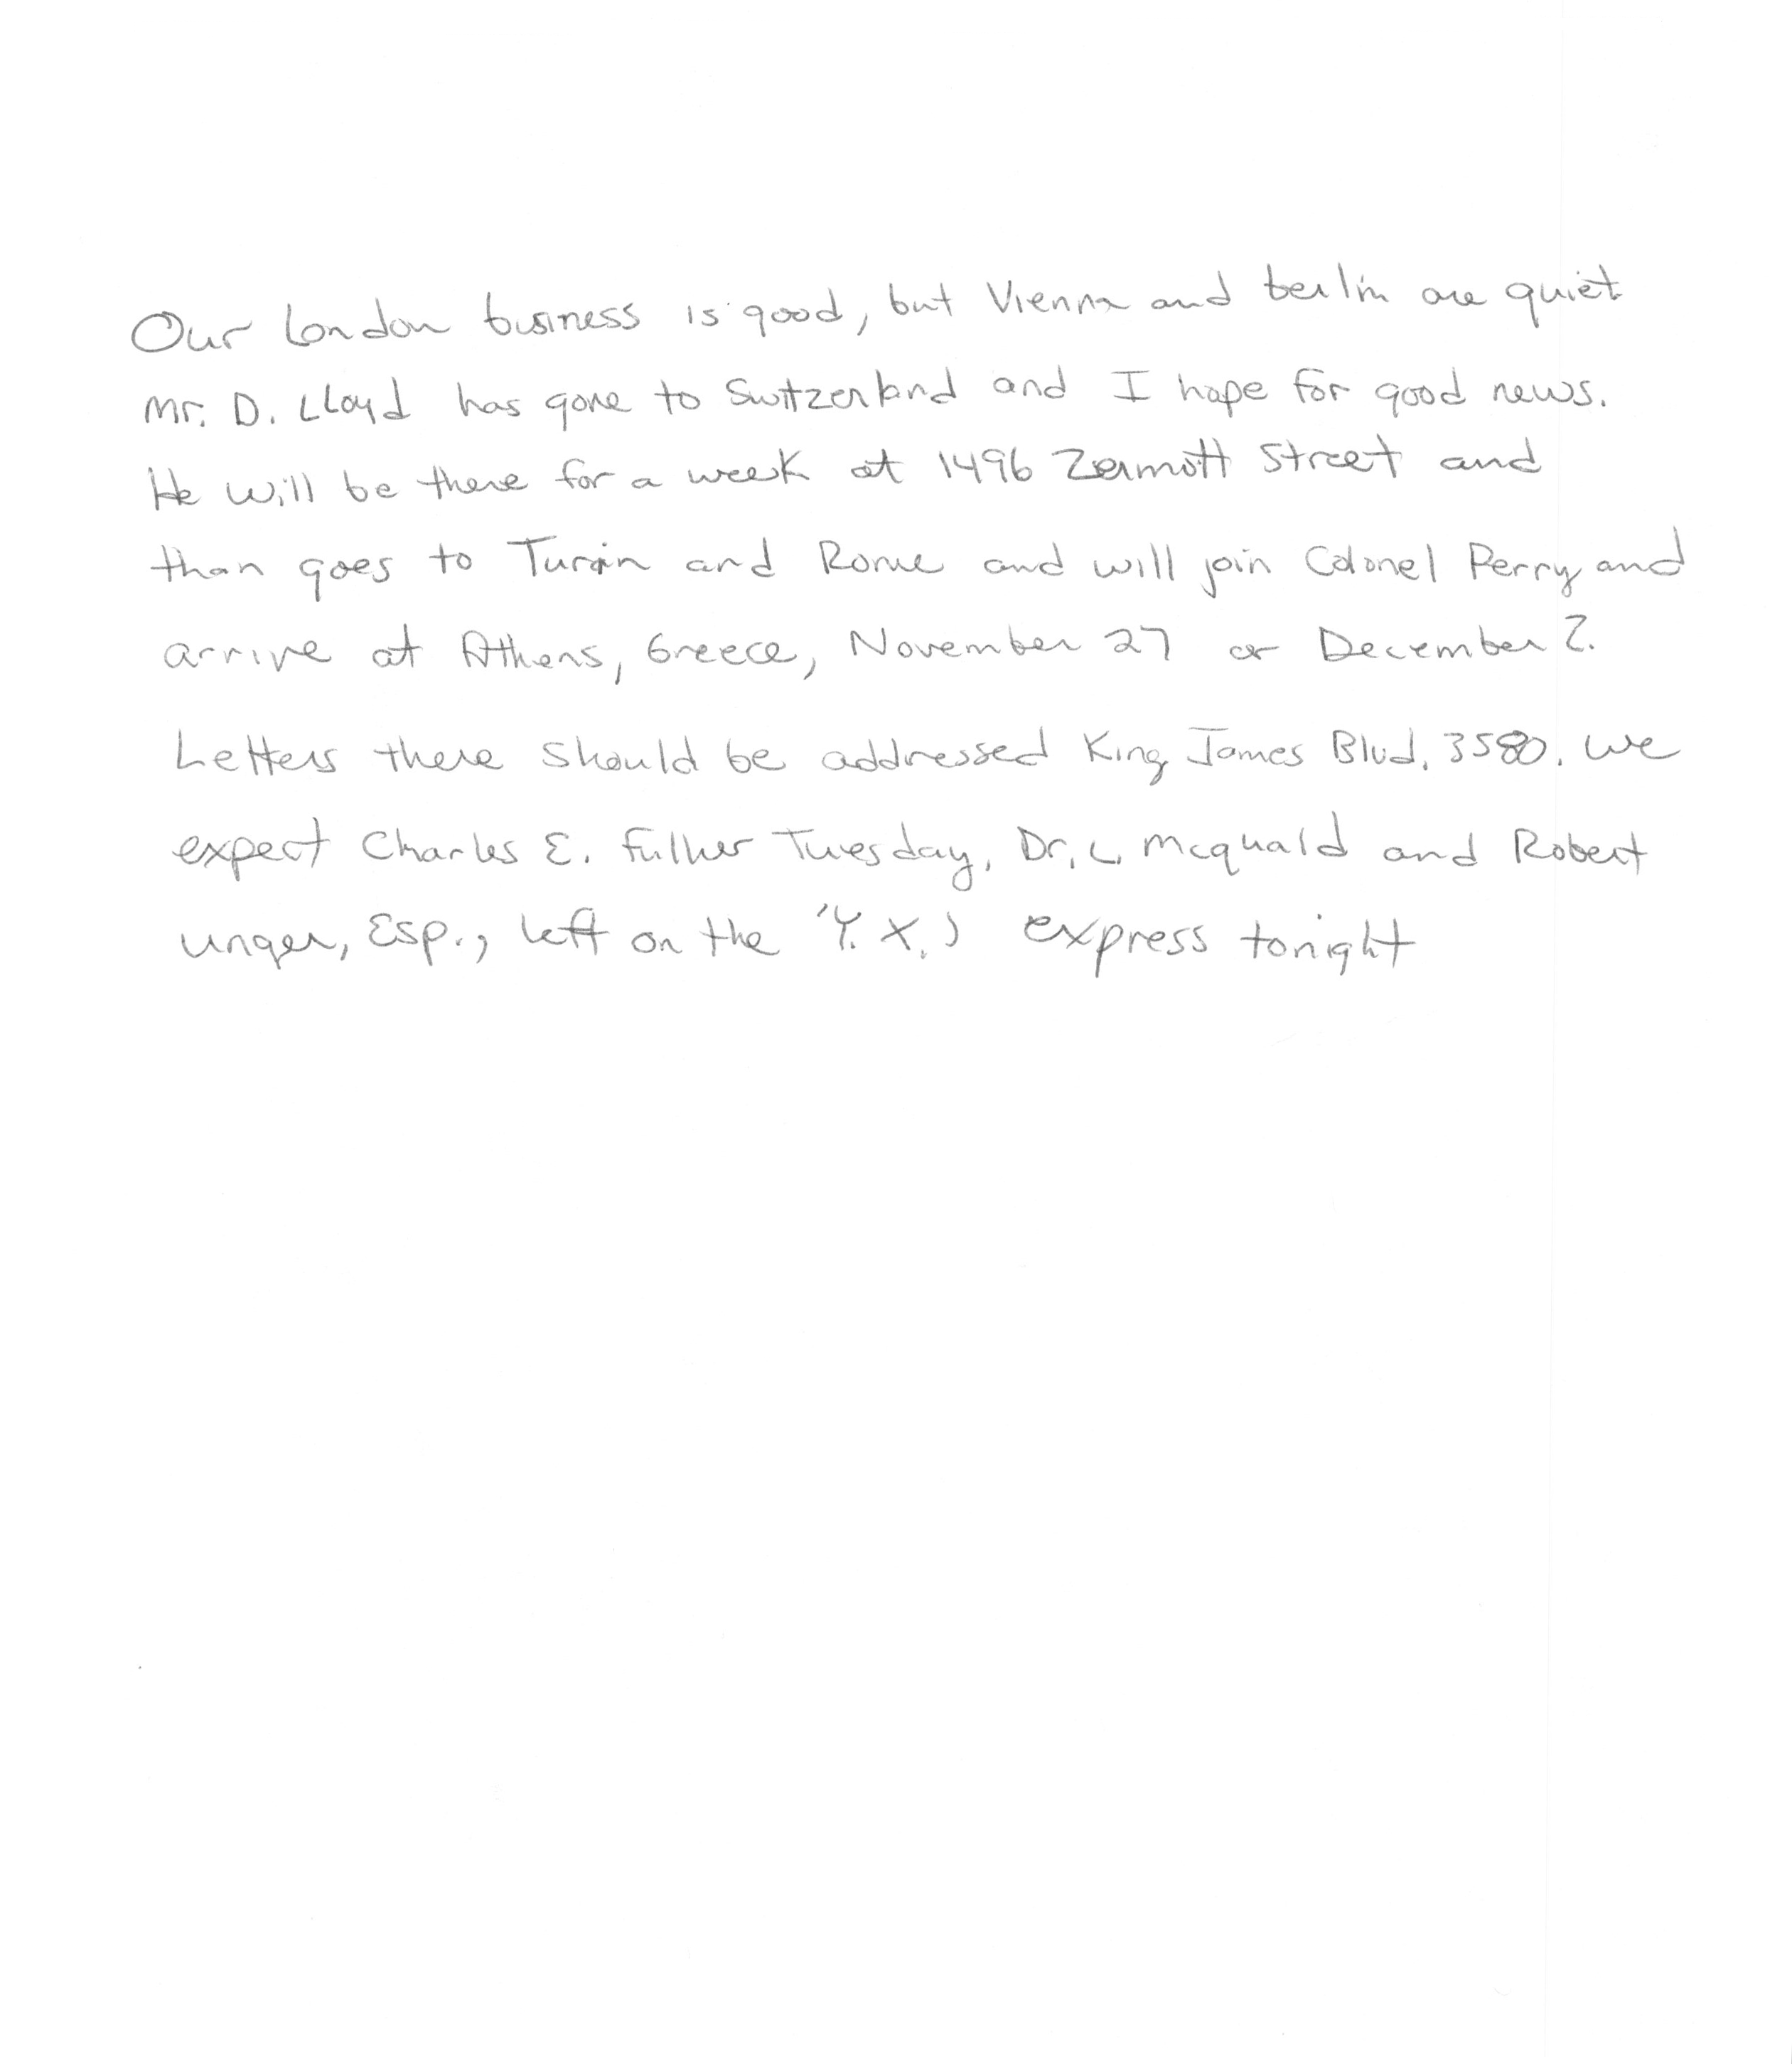 Our London business is good, but Vienna and berlin are quiet
Mr. D. Lloyd has gone to Switzerland and I hope for good news.
He will be there for a week at 1496 Zermott Street and
than goes to Turin and Rome and will join Colonel Perry and
arrive at Athens, Greece, November 27 or December 2.
Letters there should be addressed King James Blvd. 3580. We
expect Charles E. Fuller Tuesday, Dr. L. Mcquald and Robert
unger, Esp., left on the 'Y. X.' express tonight